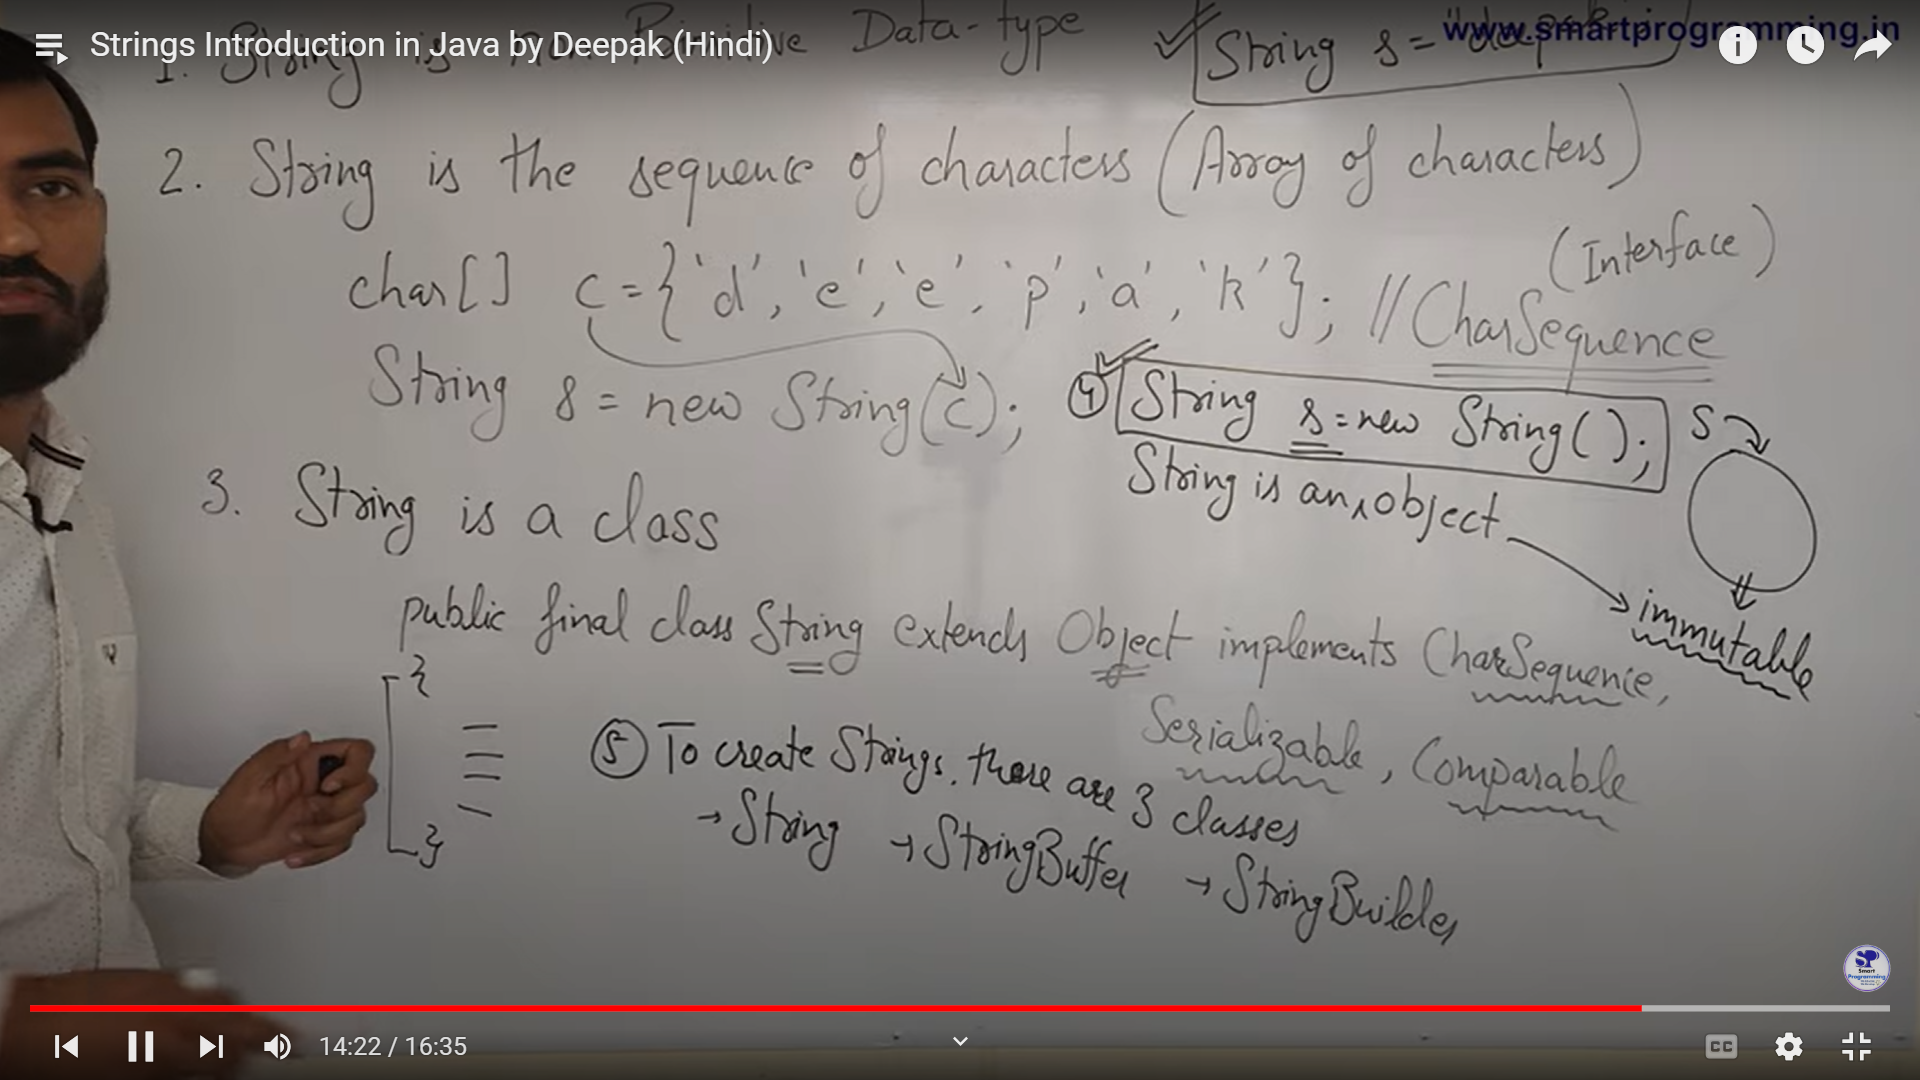 Strings Introduction in Java by Deepak (Hindi)
www.smartprogramming.in
1. String is Non-Primitive Data-type
String s = "deepak"
2. String is the sequence of characters (Array of characters)
(Interface)
char[] c = {'d', 'e', 'e', 'p', 'a', 'k'}; // CharSequence
String s = new String(c);
④ String s = new String();
S
String is an object
immutable
3. String is a class
public final class String extends Object implements CharSequence,
Serializable, Comparable
{
}
⑤ To create Strings, there are 3 classes
→ String → StringBuffer → StringBuilder
SP
Smart
Programming
14:22 / 16:35
CC